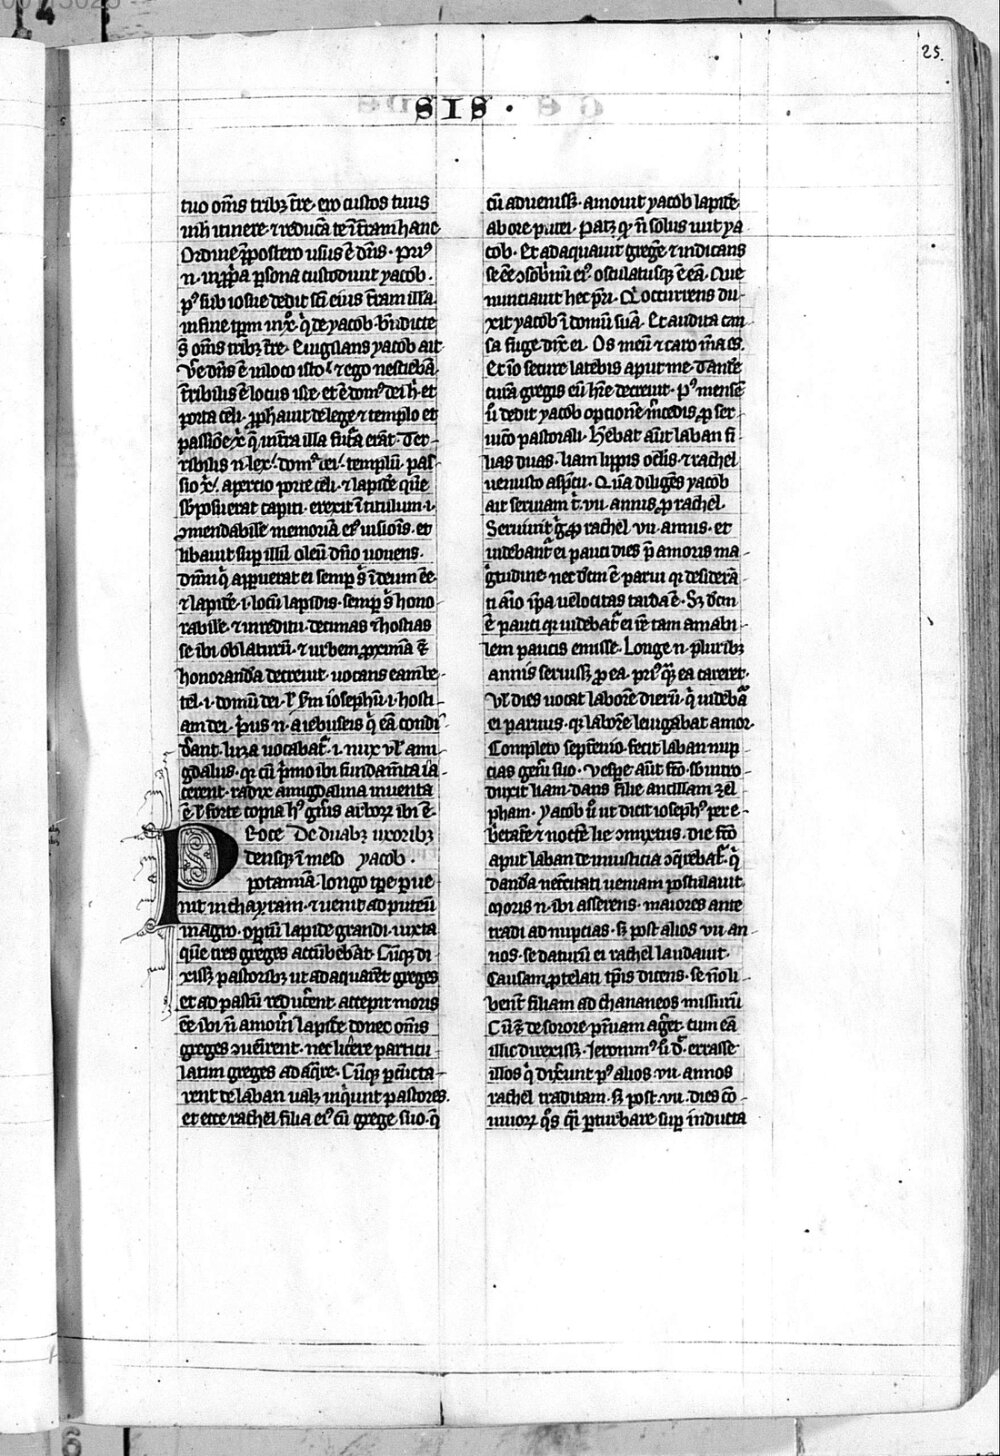 25
SIS .
tuo om̄s tribꝫ t̄re · ero custos tuus
inh̄ itinere · ⁊ reducā te ī t̄ram hanc
Ordine p̄postero usus ē dn̄s · priꝰ
n · in ꝓp̄a ꝑsona custodiuit yacob ·
pꝰ sub iosue dedit sēi eius t̄ram illā
in fine tp̄m in xᵒ q̄ de yacob · bn̄dicte
s̄t om̄s tribꝫ t̄re · Euigilans yacob ait
Ve dn̄s ē in loco isto · ⁊ ego nesciebā ·
t̄ribilis ē locus iste · et ē domꝰ dei h̄ · et
porta celi · ꝓphauit de lege ⁊ templo et
passiōe xᵗ q̄ in t̄ra illa fut̄a erāt · Ter-
ribilis n · lex · domꝰ dei · templū · pas-
sio xᵗ · apercio porte celi · ⁊ lapidē quē
sb̄posuerat capiti · erexit ī titulum · i ·
ꝯmendabilē memoriā eꝰ uisiōis · et
libauit sup̄ illū oleū dn̄o uouens ·
dn̄m q̄ apparuerat ei semp̄ s̄ i deum ēē
⁊ lapidē · i · locū lapidis · semp̄ s̄ hono-
rabile · ⁊ in reditu · decimas ⁊ hostias
se ibi oblaturū · ⁊ urbem ꝓximā ē
honorandā decreuit · uocans eam be-
tel · i · domū dei · ł s̄m iosephū · i · hosti-
am dei · p̄us n · a iebuseis q̄ eā condi-
d̄ant · luza uocabat̄ · i · nux uł ami-
gdalus · qꝛ cū p̄mo ibi fundam̄ta ia-
cerent · radix amigdalina inuenta
ē · ł forte copia hꝰ gn̄is arboꝝ ibi ē ·
P Roce De duabꝫ uxoribꝫ
densqꝫ ī meso yacob ·
potamiā · longo tp̄e peruē
nit in chayram · ⁊ uenit ad puteū
in agro · op̄tū lapide grandi · iuxta
quē tres greges accūbebāt · Cūqꝫ di-
xisꝫ pastoribꝫ ut adaquarēt greges
et ad pastū reducērent · accepit moris
ēē ibi n̄ amoūi lapidē donec om̄s
greges ꝯuēirent · nec licēre particu-
latim greges adaq̄re · Cūqꝫ ꝑcūcta-
rent de laban ualꝫ inq̄unt pastores ·
et ecce rachel filia eꝰ cū grege suo · q̄
cū aduenisꝫ · amouit yacob lapidē
ab ore putei · Patꝫ qꝛ n̄ solus uit ya
cob · Et adaquauit gregē ⁊ indicans
se ēē ꝯsob̄nū eꝰ · osculatusqꝫ ē eā · Que
nunciauit hec pr̄i · Q̄ occurrens du-
xit yacob ī domū suā · Et audita cau-
sa fuge dix̄ ei · Os meū ⁊ caro m̄a es ·
Et iō secure latebis aput me · Tandē
curā gregis cū h̄re decreuit · pꝰ mensē
ū dedit yacob optionē m̄cedis ꝓ ser-
uicō pastorali · H̄ebat aūt laban fi-
lias duas · liam lippis oc̄lis · ⁊ rachel
uenusto asp̄cu · Quā diligēs yacob
ait seruiam t̄ · vii · annis ꝓ rachel ·
Seruiuit g̊ ꝓ rachel · vii · annis · et
uidebant̄ ei pauci dies p̄ amoris ma-
g̊tudine · nec dc̄m ē parui qꝛ desiderā-
ti aīo ip̄a uelocitas tarda ē · Sꝫ dc̄m
ē pauci qꝛ uidebat̄ ei rē tam amabi-
lem paucis emisse · Longe n · pluribꝫ
annis seruisꝫ ꝓ ea · priꝰ q̄ꝫ ea careret ·
Uł dies uocat laborē dierū · q̄ uidebāt
ei paruus · qꝛ laborē leuigabat amor ·
Completo septēnio · fecit laban nup-
cias genēri suo · Vesꝑe aūt fc̄o · sb̄intro-
duxit liam · dans filie ancillam zel-
pham · Yacob ū ut dicit iosephꝰ per e-
b̄etatē ⁊ noctē lie ꝯmixtus · die fc̄o
aput laban de iniusticia ꝯq̄rebat̄ · q̄
danda neccitati ueniam postulauit
moris n · ibi asserens · maiores ante
tradi ad nupcias · sꝫ post alios vii an-
nos · se daturū ei rachel laudauit ·
Causam ꝓtelati tp̄is dicens · se n̄ li-
bent̄ filiam ad chananeos missurū
Cū ⁊ de sorore pr̄uam ag̊et · cum eā
illic direxisꝫ · Jeronimꝰ ū dᵗ · errasse
illos q̄ dix̄unt pꝰ alios · vii · annos
rachel traditam · sꝫ post · vii · dies cō-
iuuioꝝ q̊s q̄i ꝑturbare sup̄ inducta